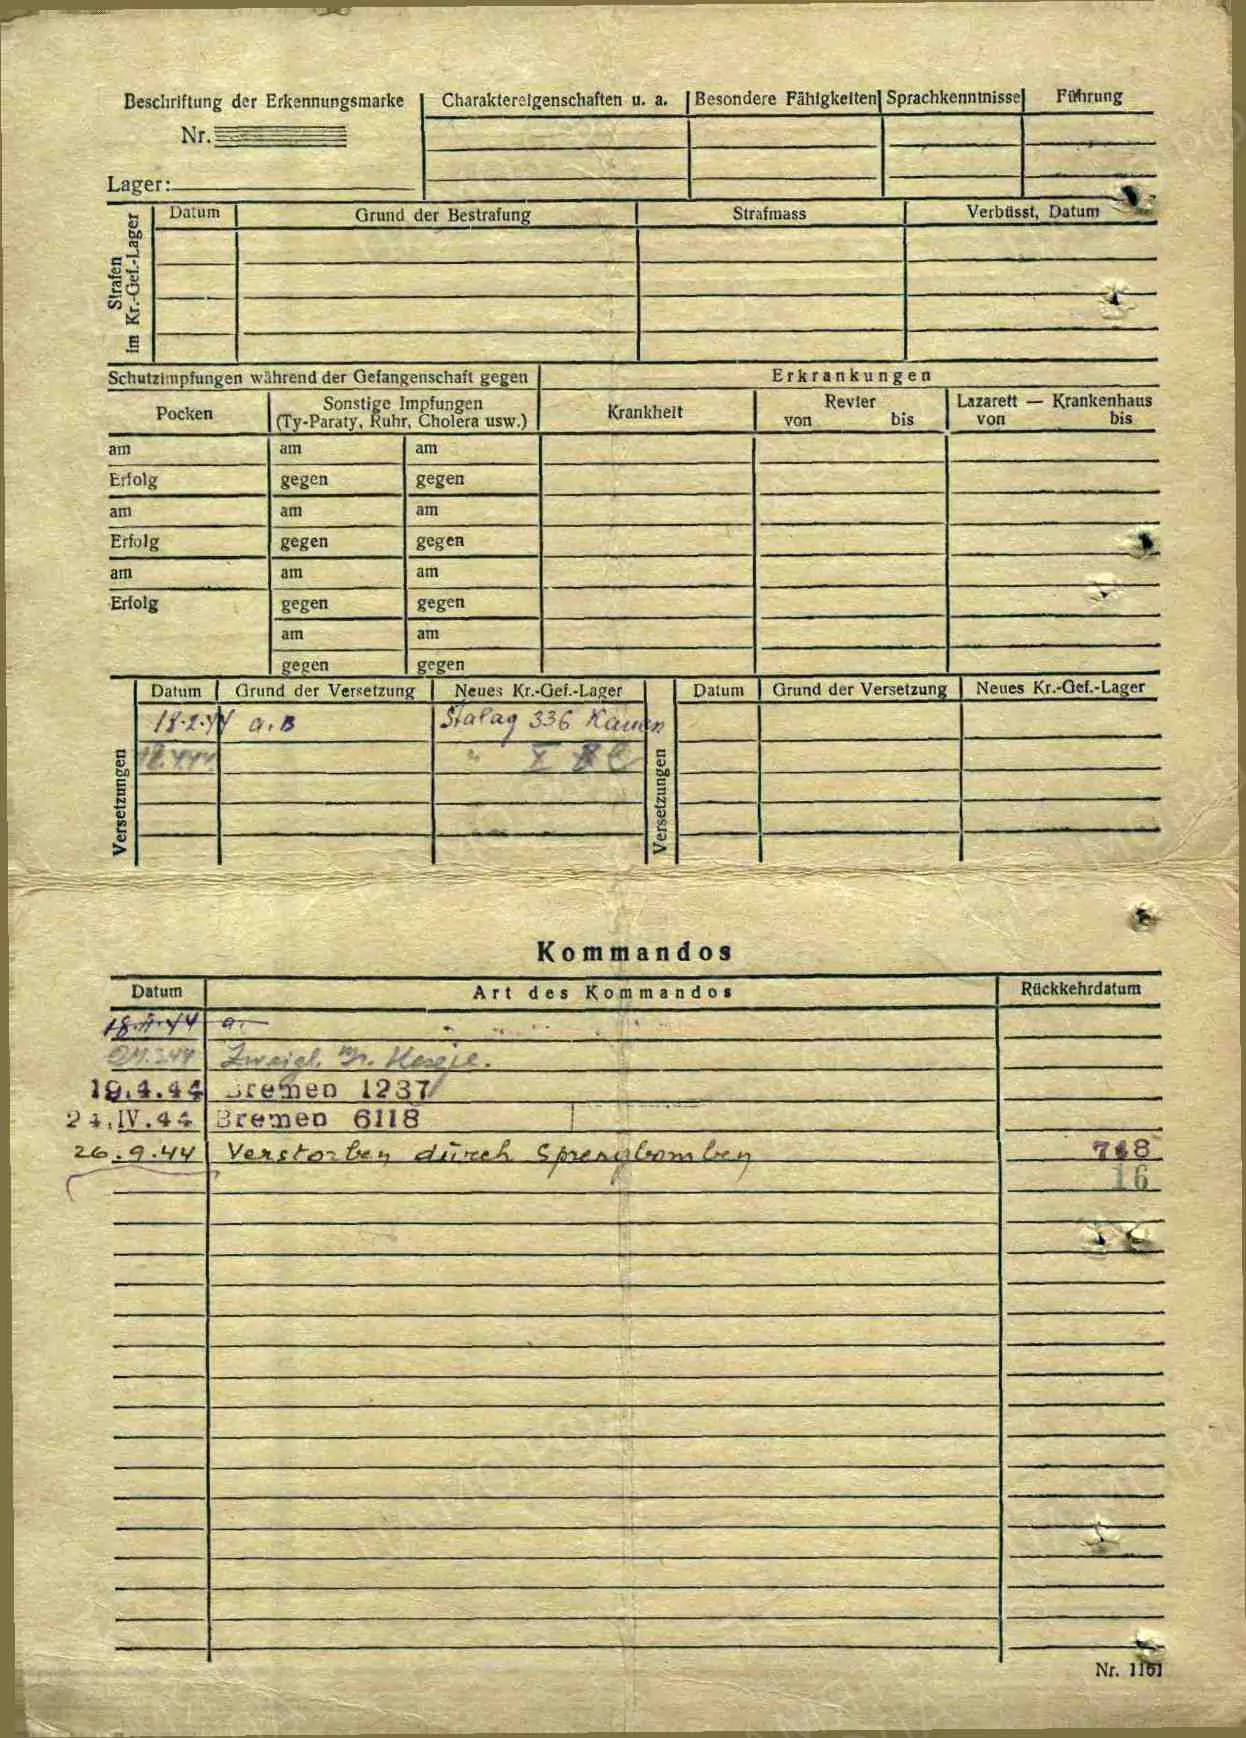 Beschriftung der Erkennungsmarke
Nr.
Lager:
Charaktereigenschaften u. a.
Besondere Fähigkeiten
Sprachkenntnisse
Führung
Strafen
im Kr.-Gef.-Lager
Datum
Grund der Bestrafung
Strafmass
Verbüsst, Datum
Schutzimpfungen während der Gefangenschaft gegen
Erkrankungen
Pocken
Sonstige Impfungen
(Ty-Paraty, Ruhr, Cholera usw.)
Krankheit
Revier
von bis
Lazarett — Krankenhaus
von bis
am am am
Erfolg gegen gegen
am am am
Erfolg gegen gegen
am am am
Erfolg gegen gegen
am am
gegen gegen
Versetzungen
Datum Grund der Versetzung Neues Kr.-Gef.-Lager
18.2.44 a.B Stalag 336 Kauen
" X B
Versetzungen
Datum Grund der Versetzung Neues Kr.-Gef.-Lager
Kommandos
Datum Art des Kommandos Rückkehrdatum
18.II.44 a.
Zweigl.
19.4.44 Bremen 1237
24.IV.44 Bremen 6118
26.9.44 Verstorben durch Sprengbomben 768
16
Nr. 1161